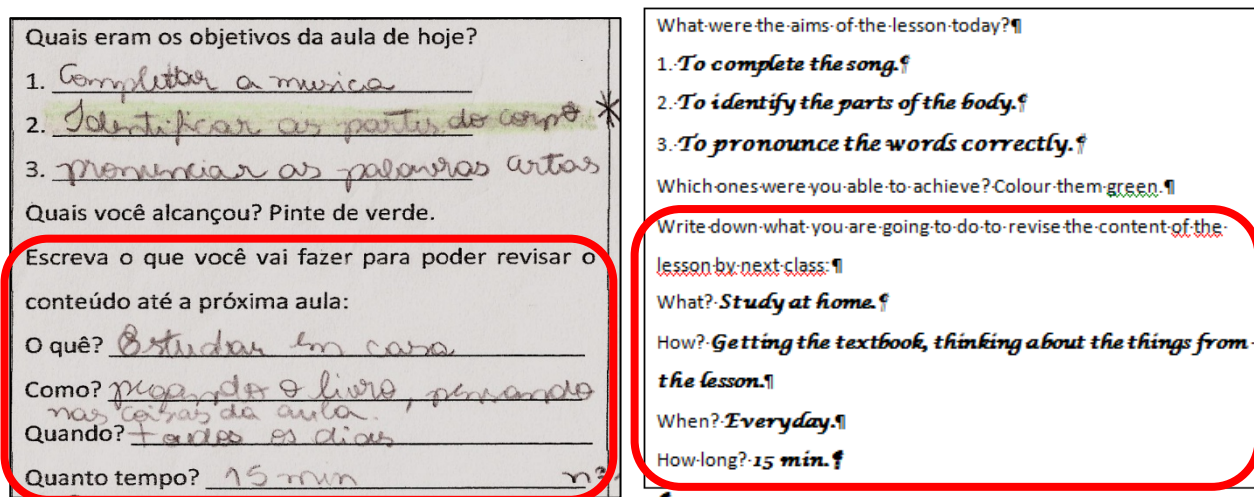 Quais eram os objetivos da aula de hoje?
1. Completar a musica
2. Identificar as partes do corpo *
3. pronunciar as palavras certas
Quais você alcançou? Pinte de verde.
Escreva o que você vai fazer para poder revisar o
conteúdo até a próxima aula:
O quê? Estudar em casa
Como? pegando o livro, pensando
nas coisas da aula.
Quando? todos os dias
Quanto tempo? 15 min
What were the aims of the lesson today?¶
1. To complete the song.¶
2. To identify the parts of the body.¶
3. To pronounce the words correctly.¶
Which ones were you able to achieve? Colour them green.¶
Write down what you are going to do to revise the content of the
lesson by next class:¶
What? Study at home.¶
How? Getting the textbook, thinking about the things from
the lesson.¶
When? Everyday.¶
How long? 15 min.¶